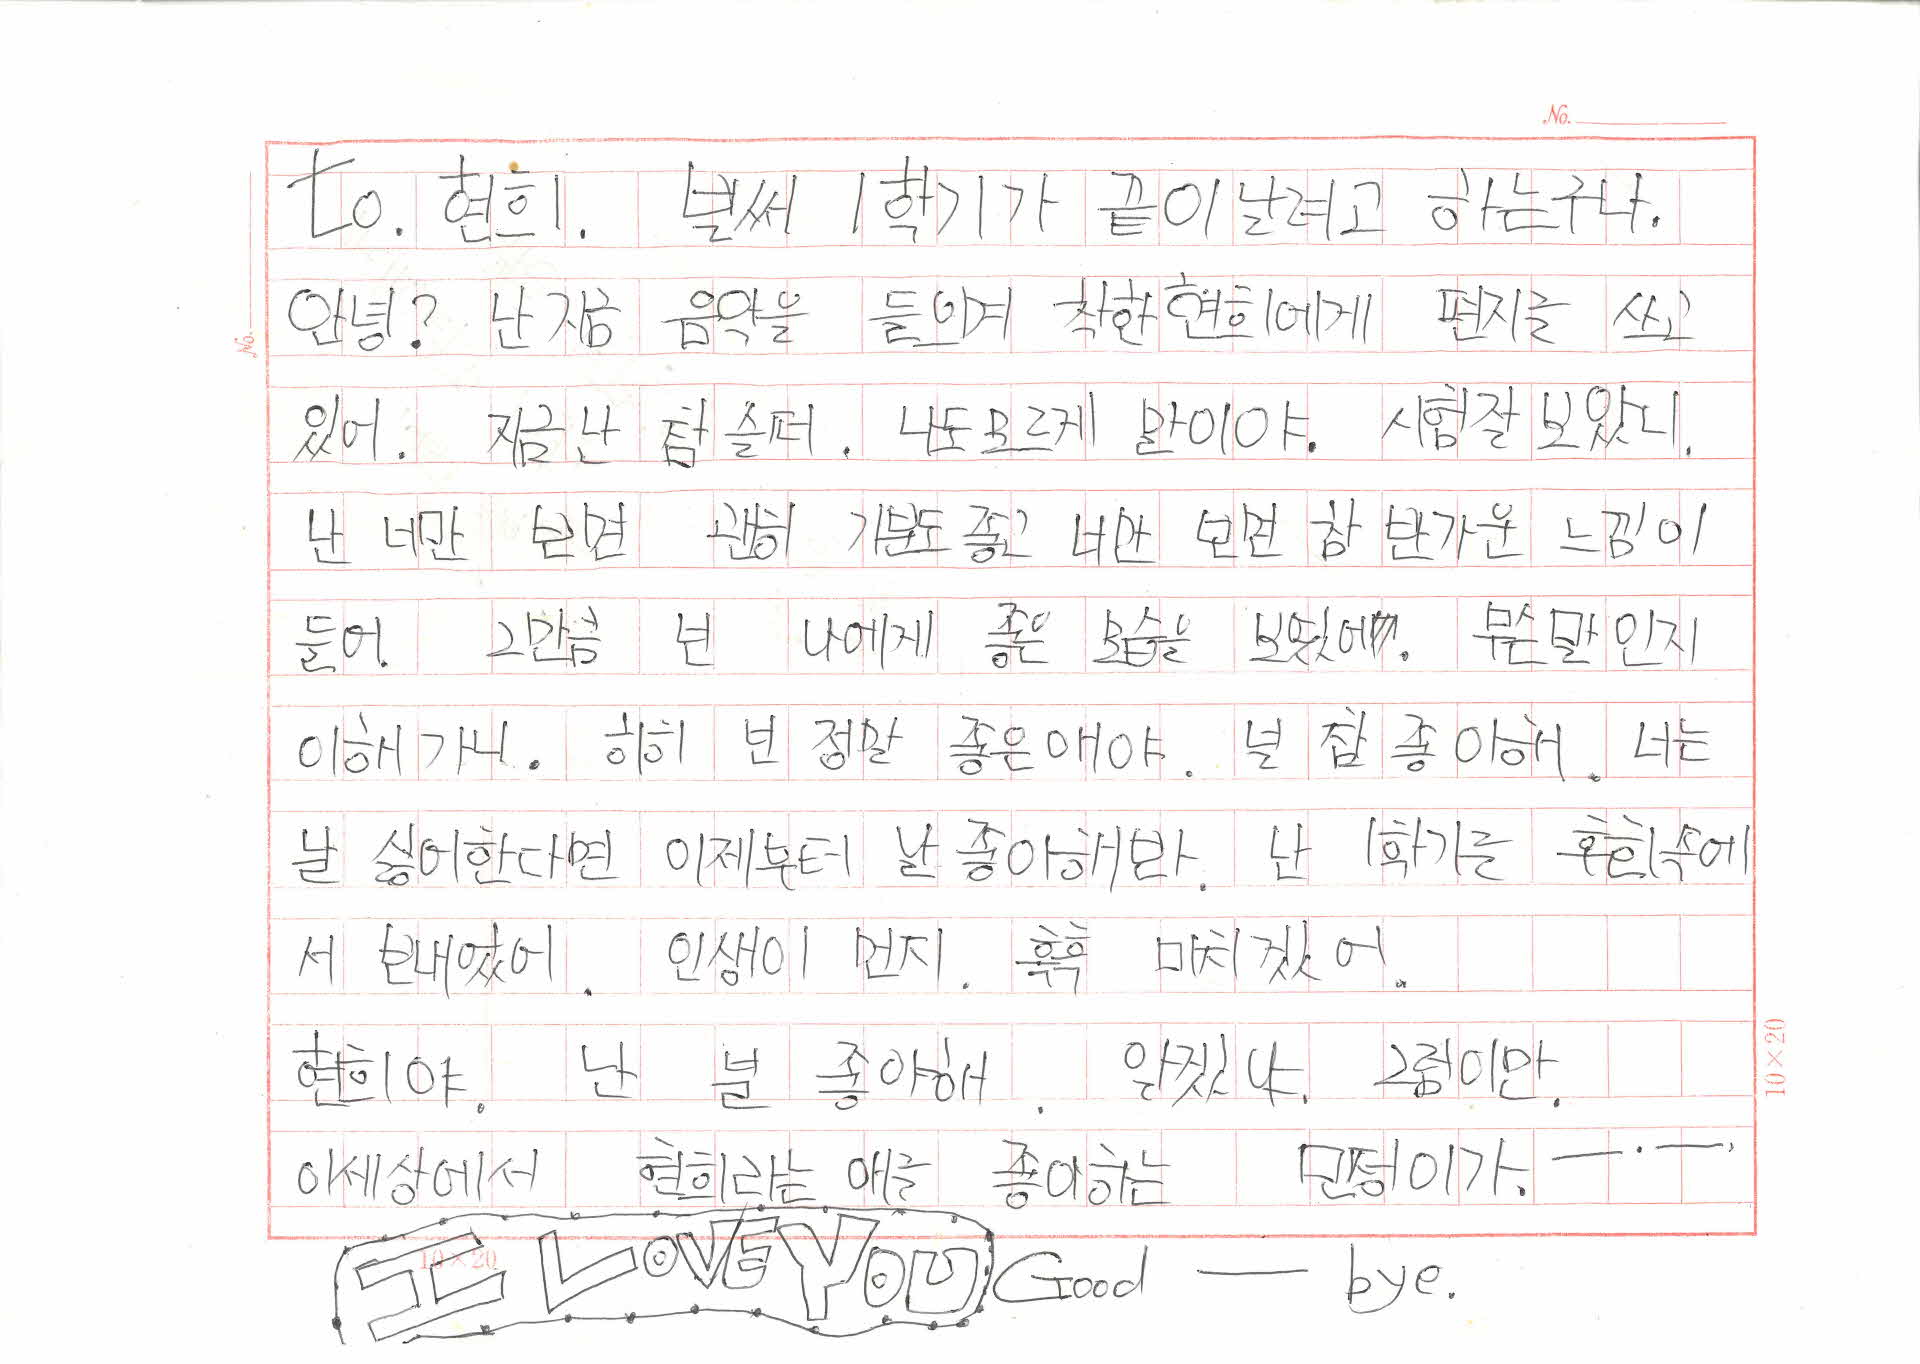 No.
to. 현희. 벌써 1학기가 끝이날려고 하는구나.
No.
안녕? 난 지금 음악을 들으며 착한현희에게 편지를 쓰고
있어. 지금난 참 슬퍼. 나도모르게 말이야. 시험잘보았니.
난 너만 보면 괜히 기분도좋고 너만 보면 참 반가운 느낌이
들어. 그만큼 넌 나에게 좋은 모습을 보였어. 무슨말인지
이해가니. 히히 넌 정말 좋은애야. 널 참 좋아해. 너는
날 싫어한다면 이제부터 날좋아해봐. 난 1학기를 후회속에
서 보내었어. 인생이 먼지. 흑흑 미치겠어.
현희야. 난 널 좋아해. 알겠냐. 그럼이만.
10×20
이세상에서 현희라는 애를 좋아하는 민정이가.
10×20
I LOVE YOU Good — bye.